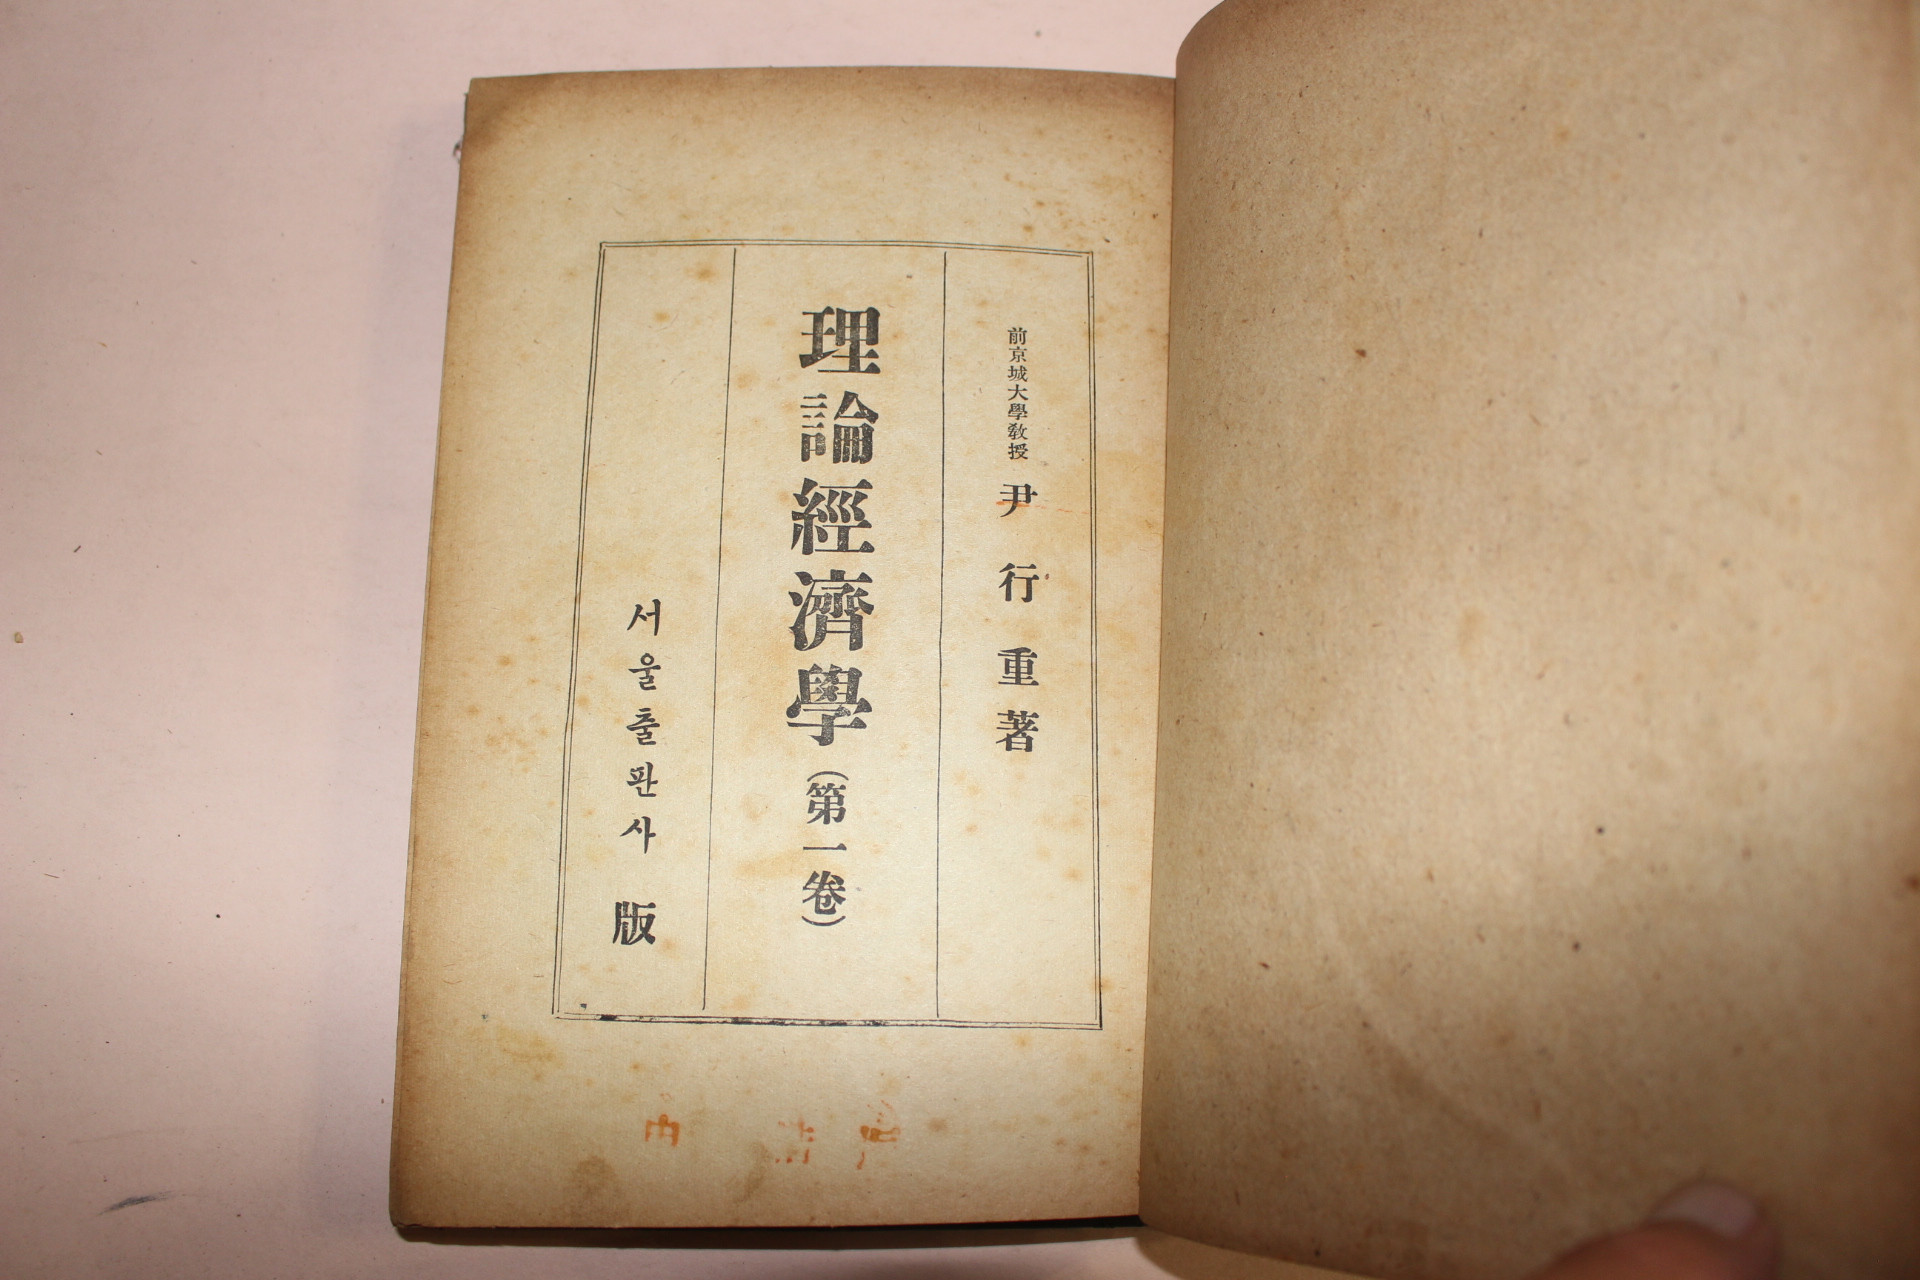 前京城大學敎授 尹行重著
理論經濟學(第一卷)
서울출판사 版